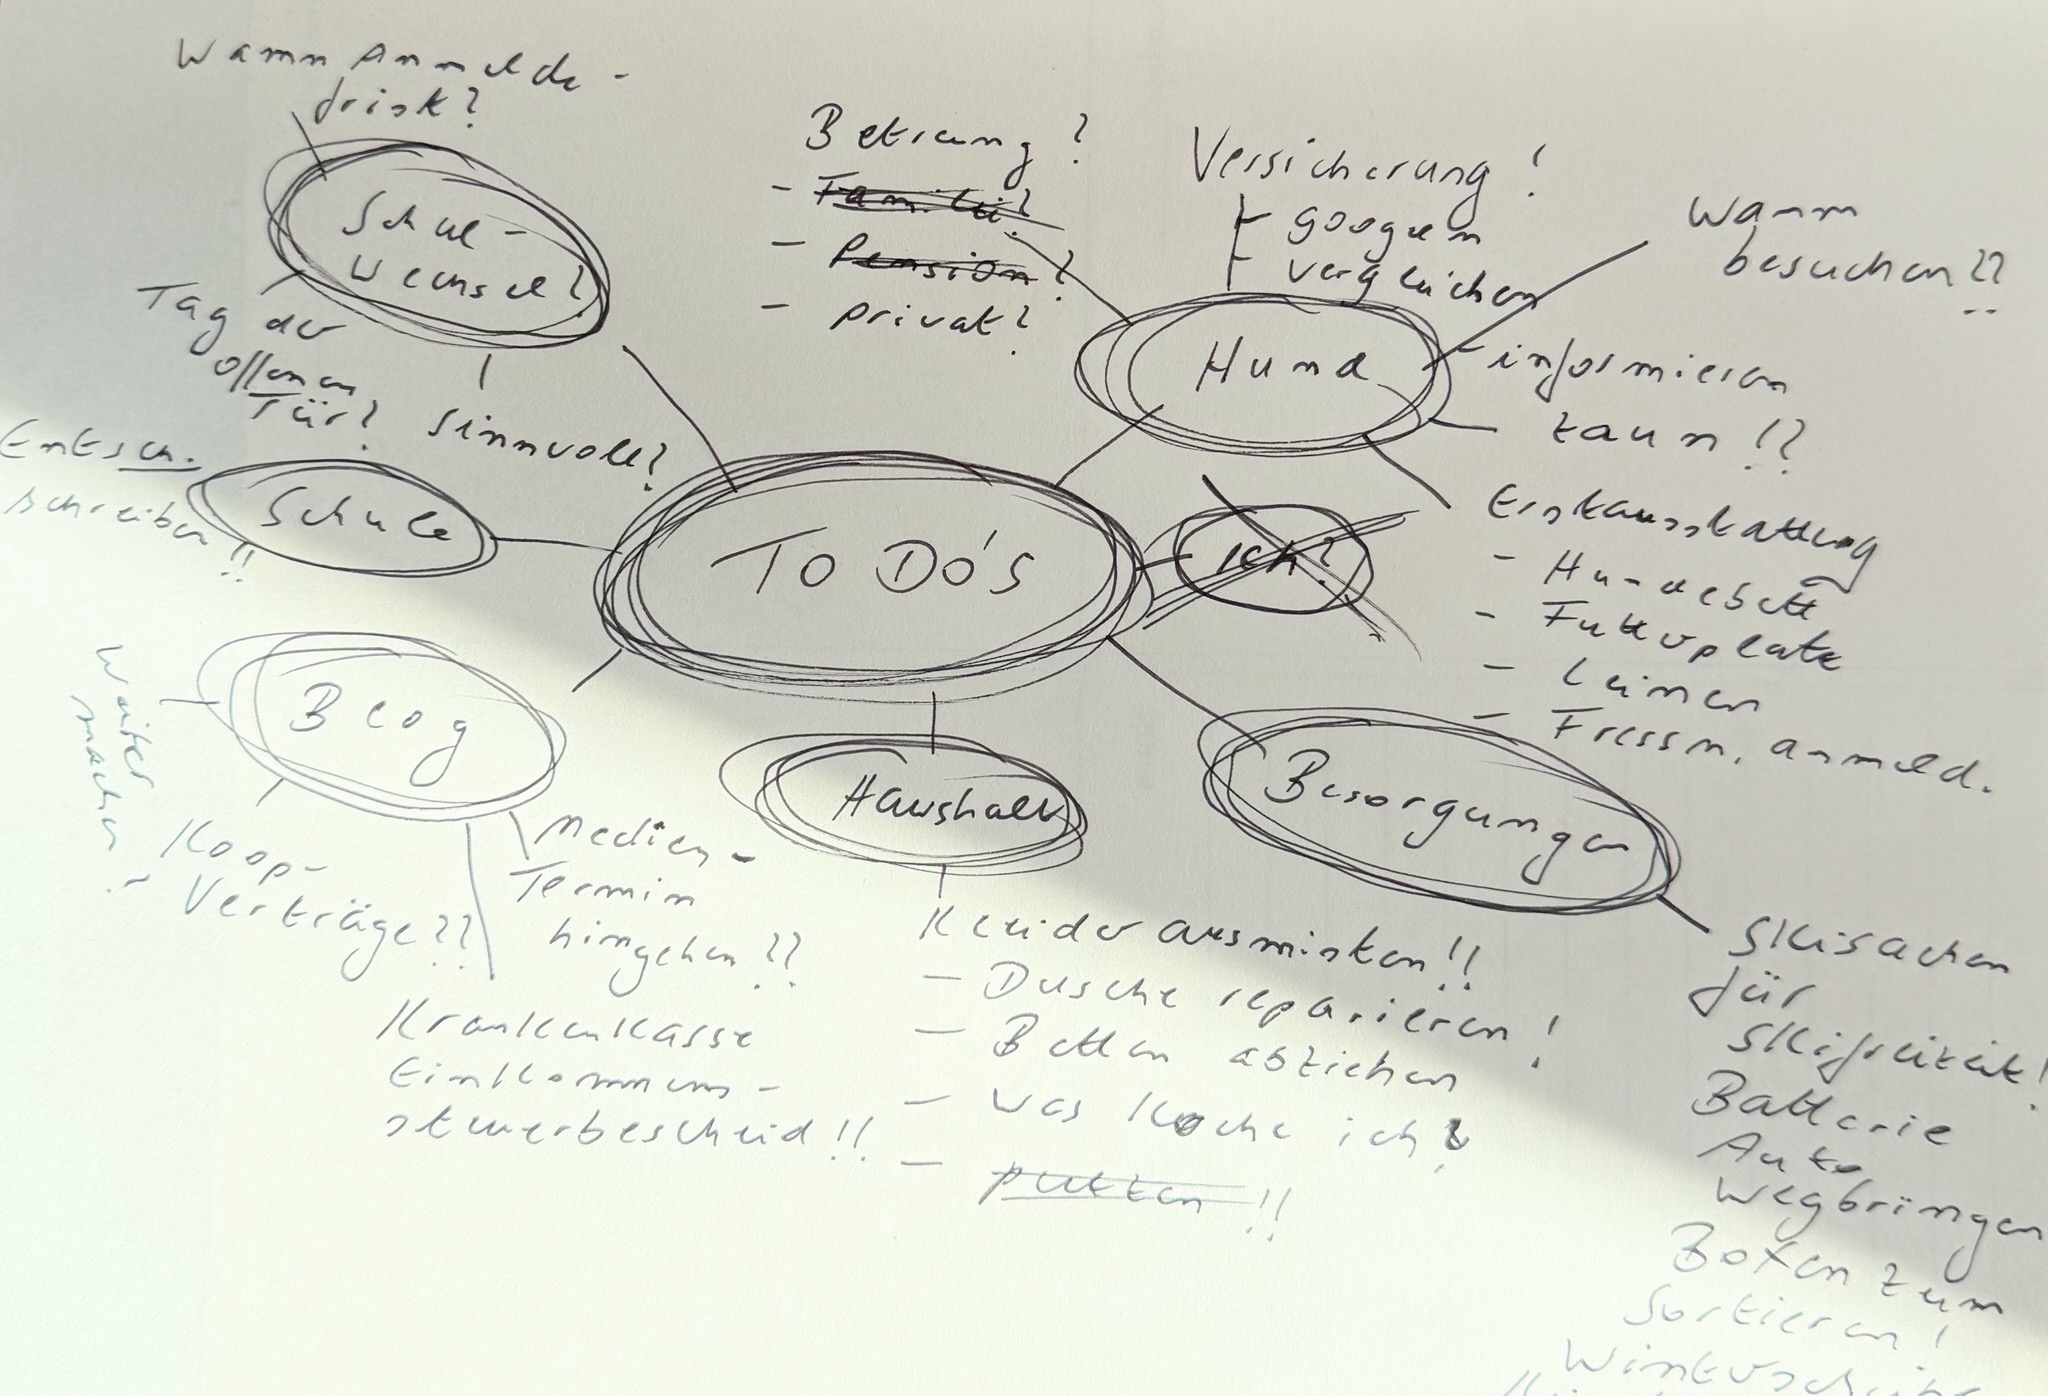 Wann Anmelde-
frist?
Schul-
wechsel?
Tag der
offenen
Tür?
Sinnvoll?
Betreung?
- Familie?
- Pension?
- privat?
Versicherung!
- googeln
- vergleichen
Wann
besuchen??
Hund
- informieren
Zaun!?
Erstausstattung
- Hundebett
- Futterplatz
- Leinen
- Fressn. anmeld.
Entsch.
schreiben!!
Schule
TO DO'S
Ich?
Blog
Weiter
machen!
Koop-
Verträge??
Medien-
Termin
hingehen??
Krankenkasse
Einkommens-
steuerbescheid!!
Haushalt
Kleider ausmisten!!
- Dusche reparieren!
- Betten abziehen
- Was koche ich?
- putzen!!
Besorgungen
Skisachen
für
Skifreizeit!
Batterie
Auto
wegbringen
Boxen zum
Sortieren!